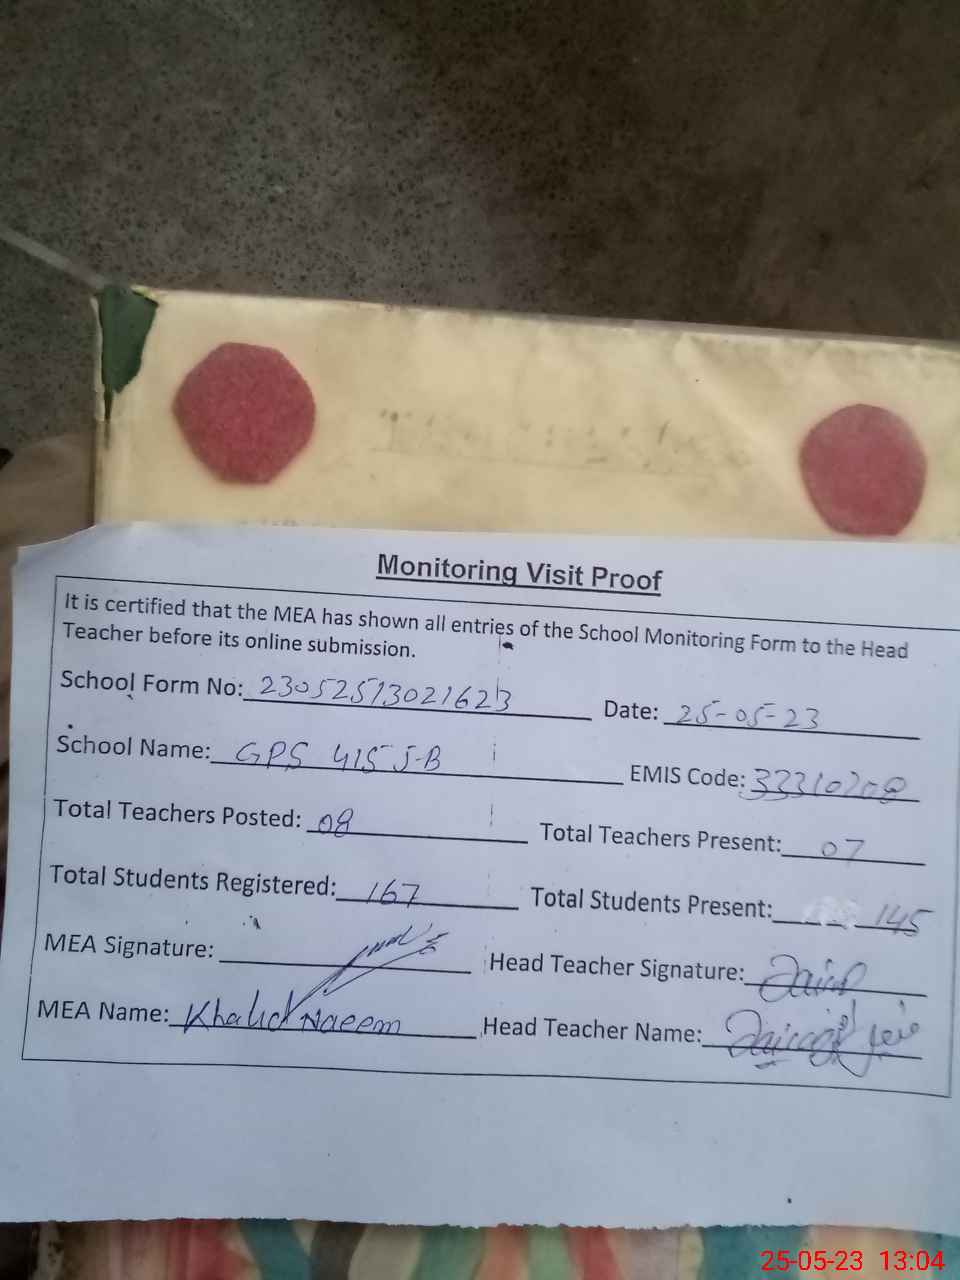 Monitoring Visit Proof
It is certified that the MEA has shown all entries of the School Monitoring Form to the Head
Teacher before its online submission.
School Form No: 23052513021623 Date: 25-05-23
School Name: GPS 415 J-B EMIS Code: 33310208
Total Teachers Posted: 08 Total Teachers Present: 07
Total Students Registered: 167 Total Students Present: 145
MEA Signature: Head Teacher Signature:
MEA Name: Khalid Naeem Head Teacher Name:
25-05-23 13:04